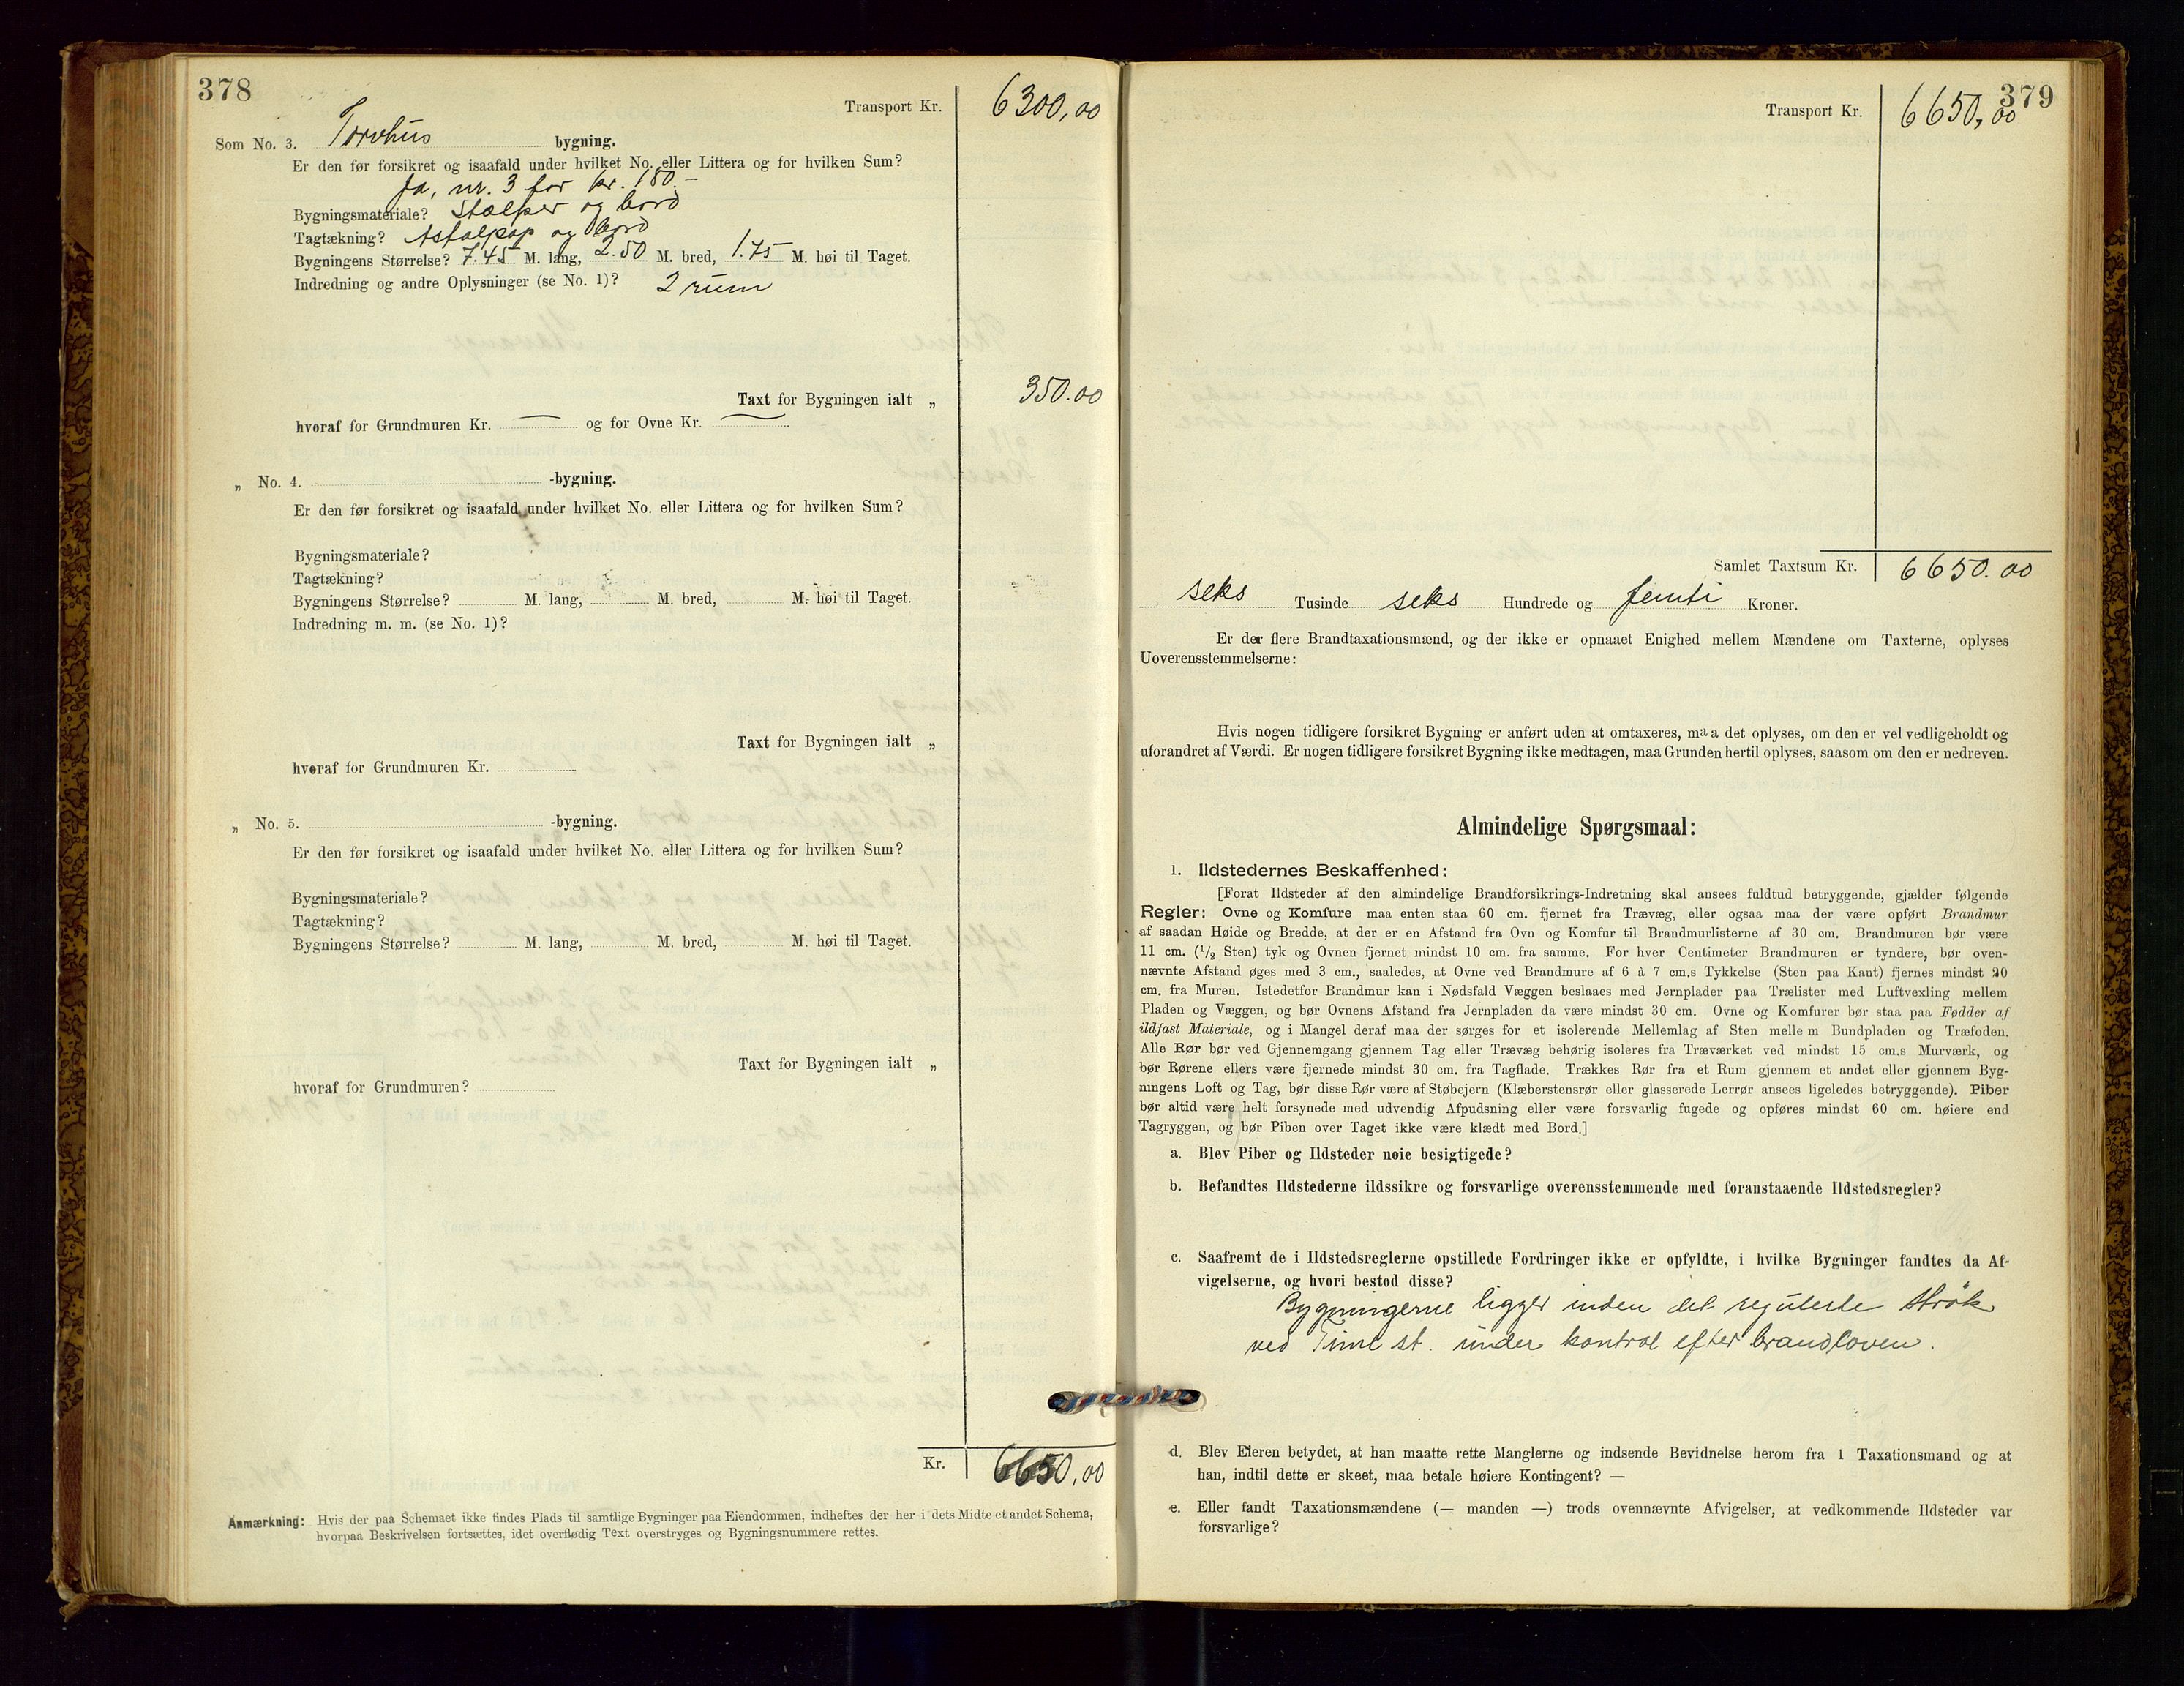 378
Transport Kr. 6300,00
Som No. 3. Torvhus bygning.
Er den før forsikret og isaafald under hvilket No. eller Littera og for hvilken Sum?
Ja, nr. 3 for kr. 180.-
Bygningsmateriale? Stolper og bord
Tagtækning? Asfalpap og bord
Bygningens Størrelse? 7.45 M. lang, 2.50 M. bred, 1.75 M. høi til Taget.
Indredning og andre Oplysninger (se No. 1)? 2 rum
Taxt for Bygningen ialt „ 350.00
hvoraf for Grundmuren Kr. — og for Ovne Kr. —
„ No. 4. -bygning.
Er den før forsikret og isaafald under hvilket No. eller Littera og for hvilken Sum?
Bygningsmateriale?
Tagtækning?
Bygningens Størrelse? M. lang, M. bred, M. høi til Taget.
Indredning m. m. (se No. 1)?
Taxt for Bygningen ialt „
hvoraf for Grundmuren Kr.
„ No. 5. -bygning.
Er den før forsikret og isaafald under hvilket No. eller Littera og for hvilken Sum?
Bygningsmateriale?
Tagtækning?
Bygningens Størrelse? M. lang, M. bred, M. høi til Taget.
Taxt for Bygningen ialt „
hvoraf for Grundmuren?
Kr. 6650,00
Anmærkning: Hvis der paa Schemaet ikke findes Plads til samtlige Bygninger paa Eiendommen, indheftes der her i dets Midte et andet Schema,
hvorpaa Beskrivelsen fortsættes, idet overflødig Text overstryges og Bygningsnummere rettes.
379
Transport Kr. 6650,00
Samlet Taxtsum Kr. 6650.00
seks Tusinde seks Hundrede og femti Kroner.
Er der flere Brandtaxationsmænd, og der ikke er opnaaet Enighed mellem Mændene om Taxterne, oplyses
Uoverensstemmelserne:
Hvis nogen tidligere forsikret Bygning er anført uden at omtaxeres, maa det oplyses, om den er vel vedligeholdt og
uforandret af Værdi. Er nogen tidligere forsikret Bygning ikke medtagen, maa Grunden hertil oplyses, saasom om den er nedreven.
Almindelige Spørgsmaal:
1. Ildstedernes Beskaffenhed:
[Forat Ildsteder af den almindelige Brandforsikrings-Indretning skal ansees fuldtud betryggende, gjælder følgende
Regler: Ovne og Komfure maa enten staa 60 cm. fjernet fra Trævæg, eller ogsaa maa der være opført Brandmur
af saadan Høide og Bredde, at der er en Afstand fra Ovn og Komfur til Brandmurlisterne af 30 cm. Brandmuren bør være
11 cm. (1/2 Sten) tyk og Ovnen fjernet mindst 10 cm. fra samme. For hver Centimeter Brandmuren er tyndere, bør oven-
nævnte Afstand øges med 3 cm., saaledes, at Ovne ved Brandmure af 6 à 7 cm.s Tykkelse (Sten paa Kant) fjernes mindst 20
cm. fra Muren. Istedetfor Brandmur kan i Nødsfald Væggen beslaaes med Jernplader paa Trælister med Luftvexling mellem
Pladen og Væggen, og bør Ovnens Afstand fra Jernpladen da være mindst 30 cm. Ovne og Komfurer bør staa paa Fødder af
ildfast Materiale, og i Mangel deraf maa der sørges for et isolerende Mellemlag af Sten mellem Bundpladen og Træfoden.
Alle Rør bør ved Gjennemgang gjennem Tag eller Trævæg behørig isoleres fra Træværket ved mindst 15 cm.s Murværk, og
bør Rørene ellers være fjernede mindst 30 cm. fra Tagflade. Trækkes Rør fra et Rum gjennem et andet eller gjennem Byg-
ningens Loft og Tag, bør disse Rør være af Støbejern (Klæberstensrør eller glasserede Lerrør ansees ligeledes betryggende). Piber
bør altid være helt forsynede med udvendig Afpudsning eller være forsvarlig fugede og opføres mindst 60 cm. høiere end
Tagryggen, og bør Piben over Taget ikke være klædt med Bord.]
a. Blev Piber og Ildsteder nøie besigtigede?
b. Befandtes Ildstederne ildssikre og forsvarlige overensstemmende med foranstaaende Ildstedsregler?
c. Saafremt de i Ildstedsreglerne opstillede Fordringer ikke er opfyldte, i hvilke Bygninger fandtes da Af-
vigelserne, og hvori bestod disse?
Bygningerne ligger inden det regulerte strøk
ved Time st. under kontrol efter brandloven.
d. Blev Eieren betydet, at han maatte rette Manglerne og indsende Bevidnelse herom fra 1 Taxationsmand og at
han, indtil dette er skeet, maa betale høiere Kontingent? —
e. Eller fandt Taxationsmændene (— manden —) trods ovennævnte Afvigelser, at vedkommende Ildsteder var
forsvarlige?